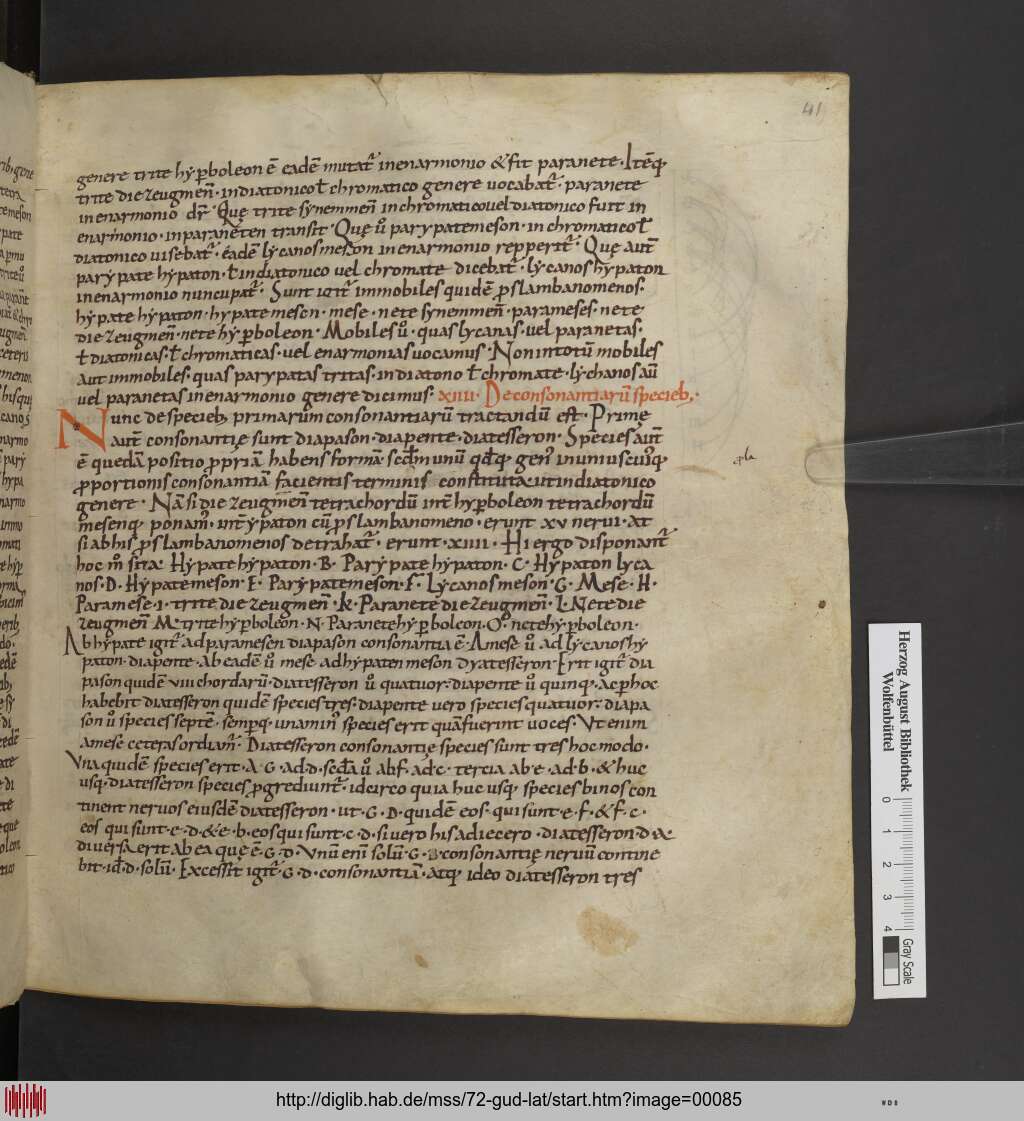 41
genere trite hyꝑboleon ē eadē mutat̄ in enarmonio & fit paranete · Itēq;
trite diezeugmen̄ · in diatonico ł chromatico genere uocabat̄ · paranete
in enarmonio dr̄ · Quę trite synemmen̄ in chromatico uel diatonico fuit in
enarmonio · in paraneten transit · Quę ů parypatemeson · in chromatico ł
diatonico uisebat̄ · eadē lycanos meson in enarmonio repperit̄ · Quę aut̄
parypate hypaton · ł in diatonico uel chromate dicebat̄ · lycanos hypaton
in enarmonio nuncupat̄ · Sunt igit̄ immobiles quidē ꝓslambanomenos ·
hypate hypaton · hypate meson · mese · nete synemmen̄ · parameses · nete
die zeugmen̄ · nete hyꝑboleon · Mobiles ů · quas lycanas · uel paranetas ·
ł diatonicas · ł chromaticas · uel enarmonias uocamus · Non in totū mobiles
aut immobiles · quas parypatas tritas · in diatono ł chromate · lychanos aū
uel paranetas in enarmonio genere dicimus · XIIII · De consonantiarū specieb; ·
Nunc de specieb; primarum consonantiarū tractandū est · Primę
aut̄ consonantię sunt diapason · diapente · diatesseron · Species aūt
ē quedā positio ꝓpriā habens formā · scd̄m unū qd̄q; gen̄ in unius cui⁹q;
ꝓportionis consonantiā facientis terminis constituta · ut in diatonico
genere · Nā si diezeugmen̄ tetrachordū int̄ hyꝑboleon tetrachordū
mesenq; ponam̄ · int̄ ypaton cū ꝓslambanomeno · erunt xv nerui · at
si ab his ꝓslambanomenos detrahat̄ · erunt · XIIII · Hi ergo disponant̄
hoc m̄ sita · Hypate hypaton · B · Parypate hypaton · C · Hypaton lyca
nos · D · Hypate meson · E · Parypate meson · F · Lycanos meson · G · Mese · H ·
Paramese · I · trite diezeugmen̄ · K · Paranete diezeugmen̄ · L · Nete die
zeugmen̄ M · trite hyꝑboleon · N · Paranete hyꝑboleon · O · nete hyꝑboleon ·
Ab hypate igit̄ ad paramesen diapason consonantia ē · A mese ů ad lycanos hy
paton · diapente · ab eadē ů mese ad hypaten meson dyatesseron · Erit igit̄ dia
pason quidē VIII chordarū · diatesseron ů quatuor · diapente ů quinq; · Ac ꝑ hoc
habebit diatesseron quidē species tres · diapente uero species quatuor · diapa
son ů species septē · semꝑq; · una min̄ species erit quā fuerint uoces · Ut enim
a mese ceteras ordiam̄ · Diatesseron consonantię species sunt tres hoc modo ·
Una quidē species erit · A · G · ad · D · scd̄a ů ab f · ad · c · tercia ab · e · ad · b · & huc
usq; · diatesseron species ꝓgrediunt̄ · idcirco quia huc usq; species binos con
tinent neruos eiusdē diatesseron · ut · G · D · quidē eos · qui sunt · e · f · & f · c ·
eos qui sunt · c · d · & e · b · eos qui sunt · c · d · si uero his adiecero · diatesseron · d · a ·
diuersa erit ab ea quę ē · G · D · Unū eni solū · G · D · consonantię neruū contine
bit · id ÷ d · solū · Excessit igit̄ · G · D · consonantiā · atq; ideo diatesseron tres
Herzog August Bibliothek
Wolfenbüttel
0 1 2 3 4
Gray Scale
http://diglib.hab.de/mss/72-gud-lat/start.htm?image=00085